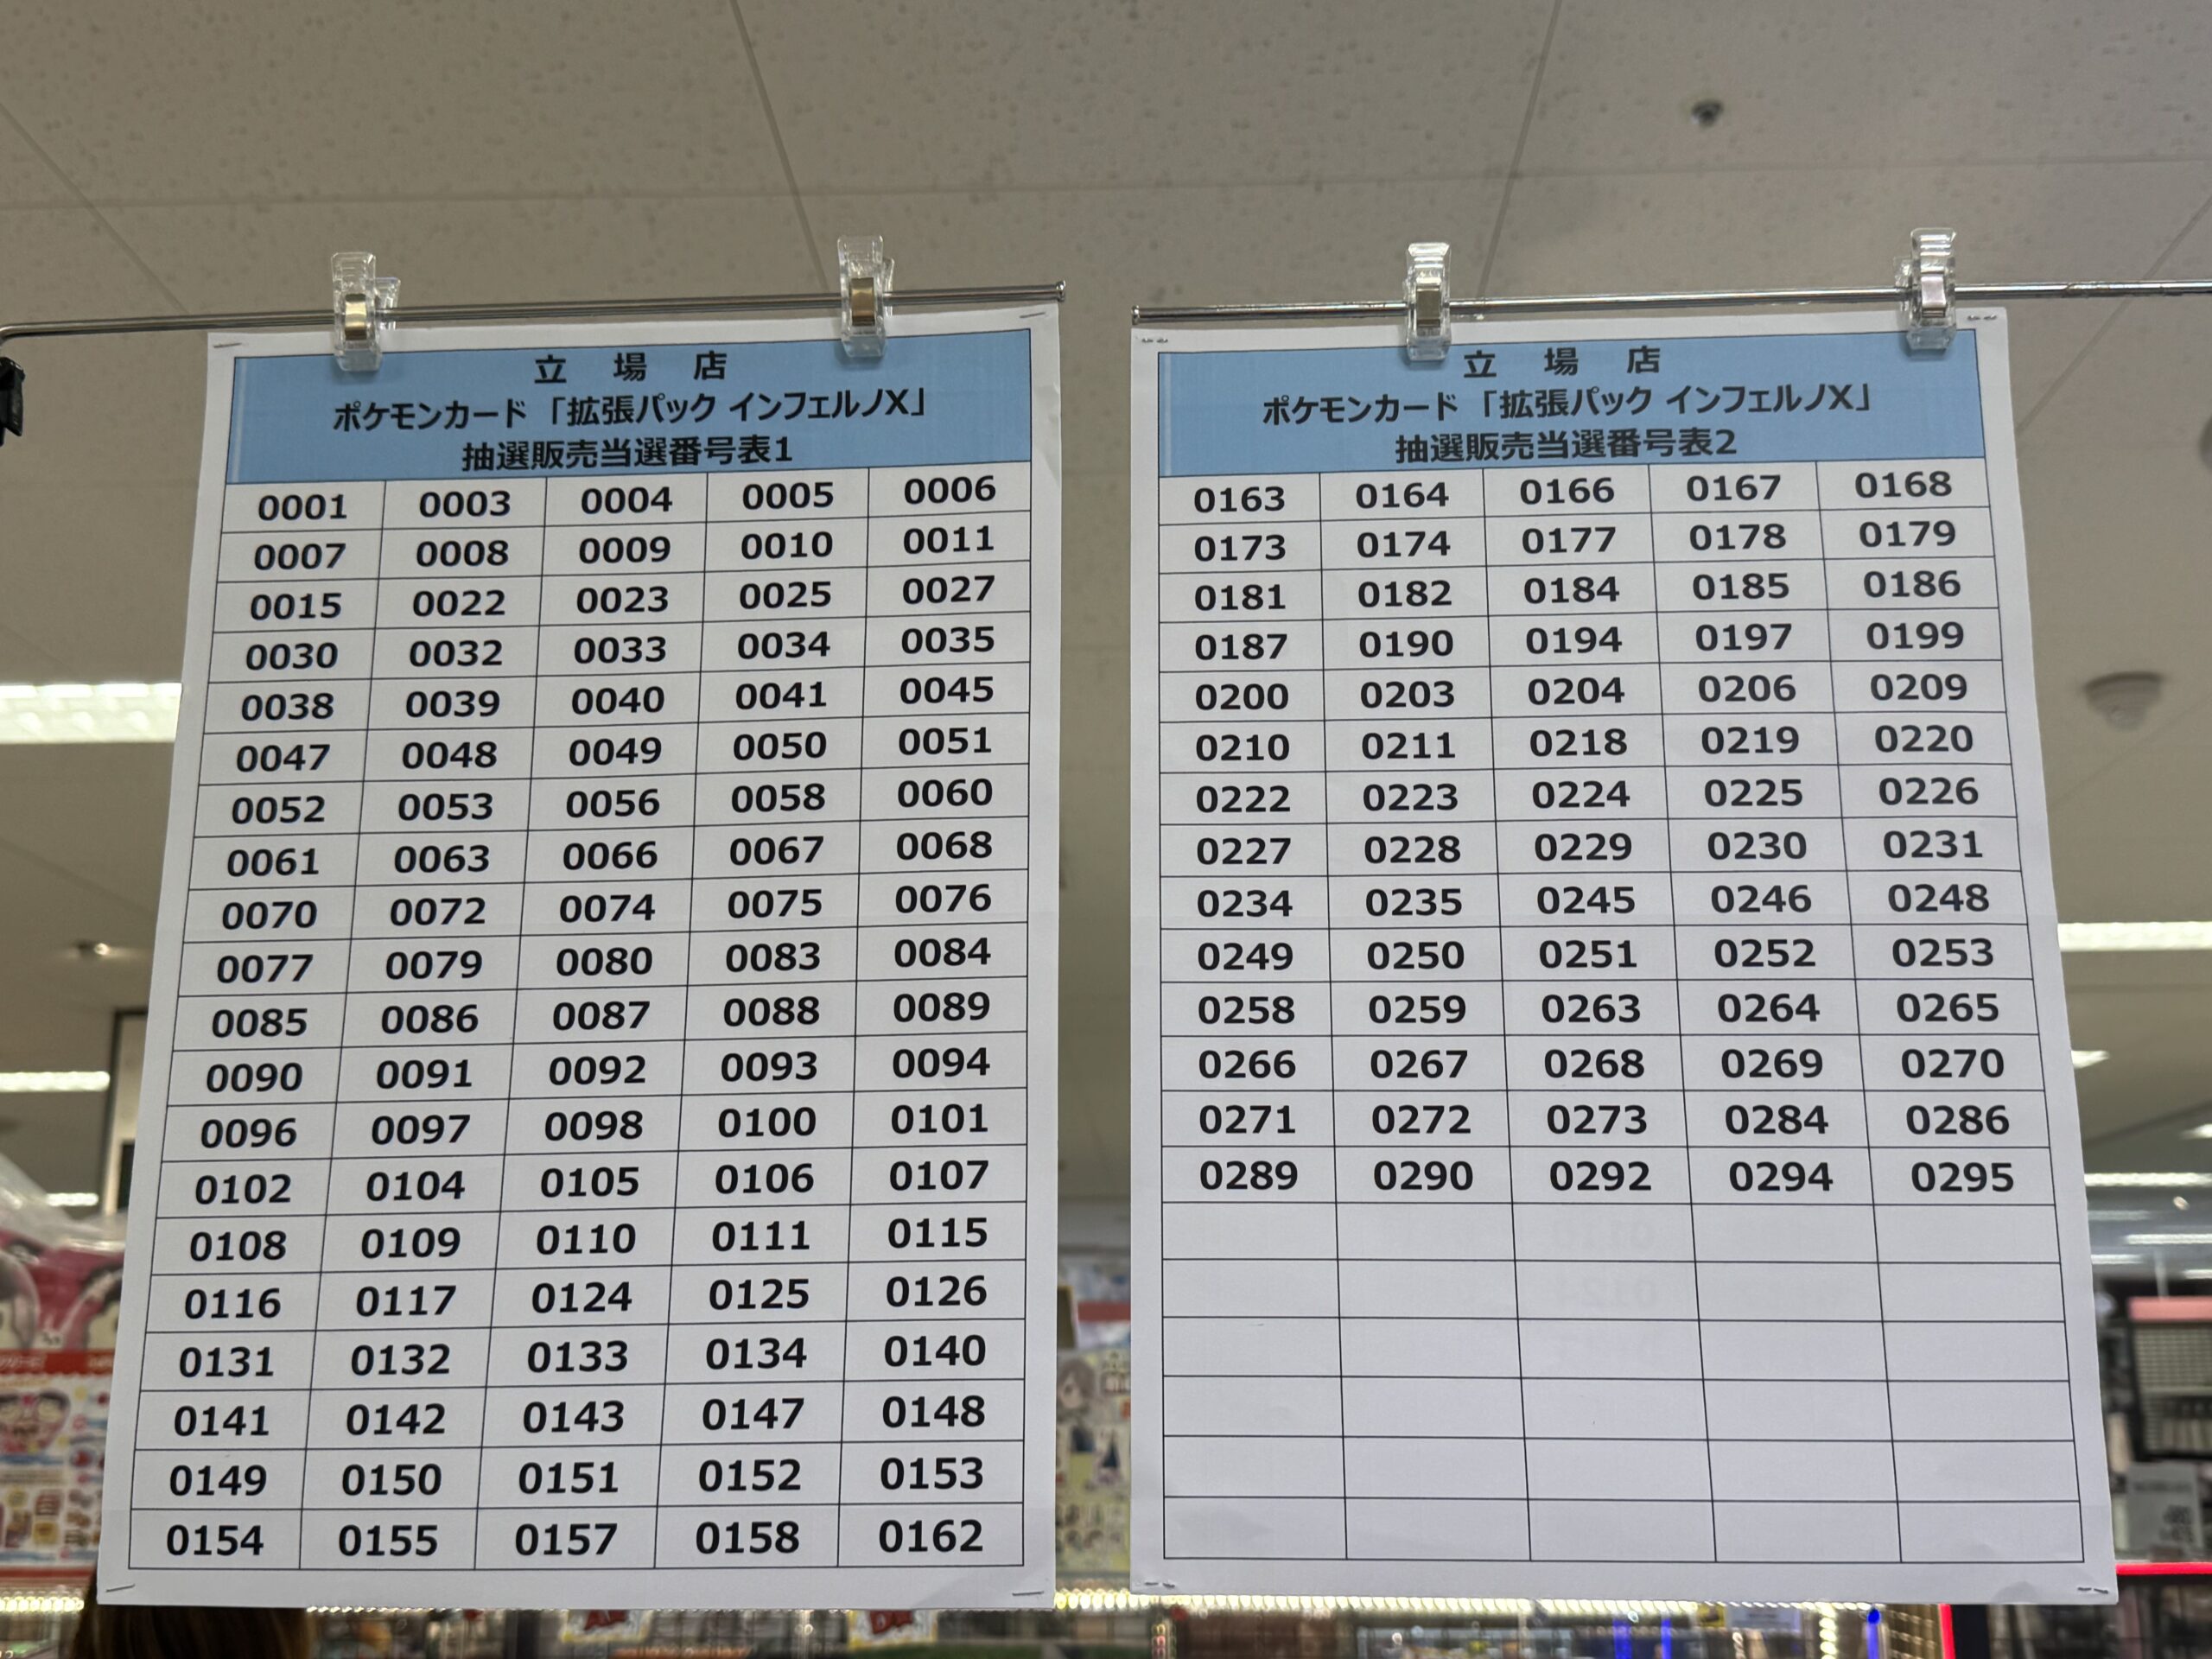 立 場 店
ポケモンカード「拡張パック インフェルノX」
抽選販売当選番号表1
0001 0003 0004 0005 0006
0007 0008 0009 0010 0011
0015 0022 0023 0025 0027
0030 0032 0033 0034 0035
0038 0039 0040 0041 0045
0047 0048 0049 0050 0051
0052 0053 0056 0058 0060
0061 0063 0066 0067 0068
0070 0072 0074 0075 0076
0077 0079 0080 0083 0084
0085 0086 0087 0088 0089
0090 0091 0092 0093 0094
0096 0097 0098 0100 0101
0102 0104 0105 0106 0107
0108 0109 0110 0111 0115
0116 0117 0124 0125 0126
0131 0132 0133 0134 0140
0141 0142 0143 0147 0148
0149 0150 0151 0152 0153
0154 0155 0157 0158 0162
立 場 店
ポケモンカード「拡張パック インフェルノX」
抽選販売当選番号表2
0163 0164 0166 0167 0168
0173 0174 0177 0178 0179
0181 0182 0184 0185 0186
0187 0190 0194 0197 0199
0200 0203 0204 0206 0209
0210 0211 0218 0219 0220
0222 0223 0224 0225 0226
0227 0228 0229 0230 0231
0234 0235 0245 0246 0248
0249 0250 0251 0252 0253
0258 0259 0263 0264 0265
0266 0267 0268 0269 0270
0271 0272 0273 0284 0286
0289 0290 0292 0294 0295